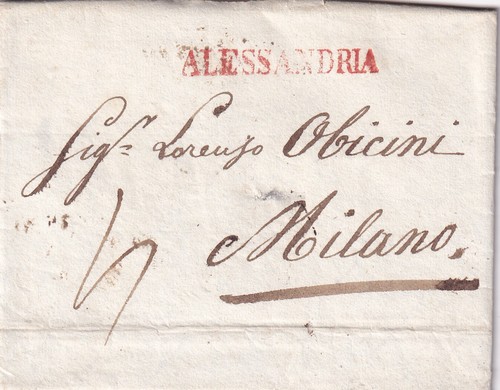 ALESSANDRIA
Sigr. Lorenzo Obicini
Milano.